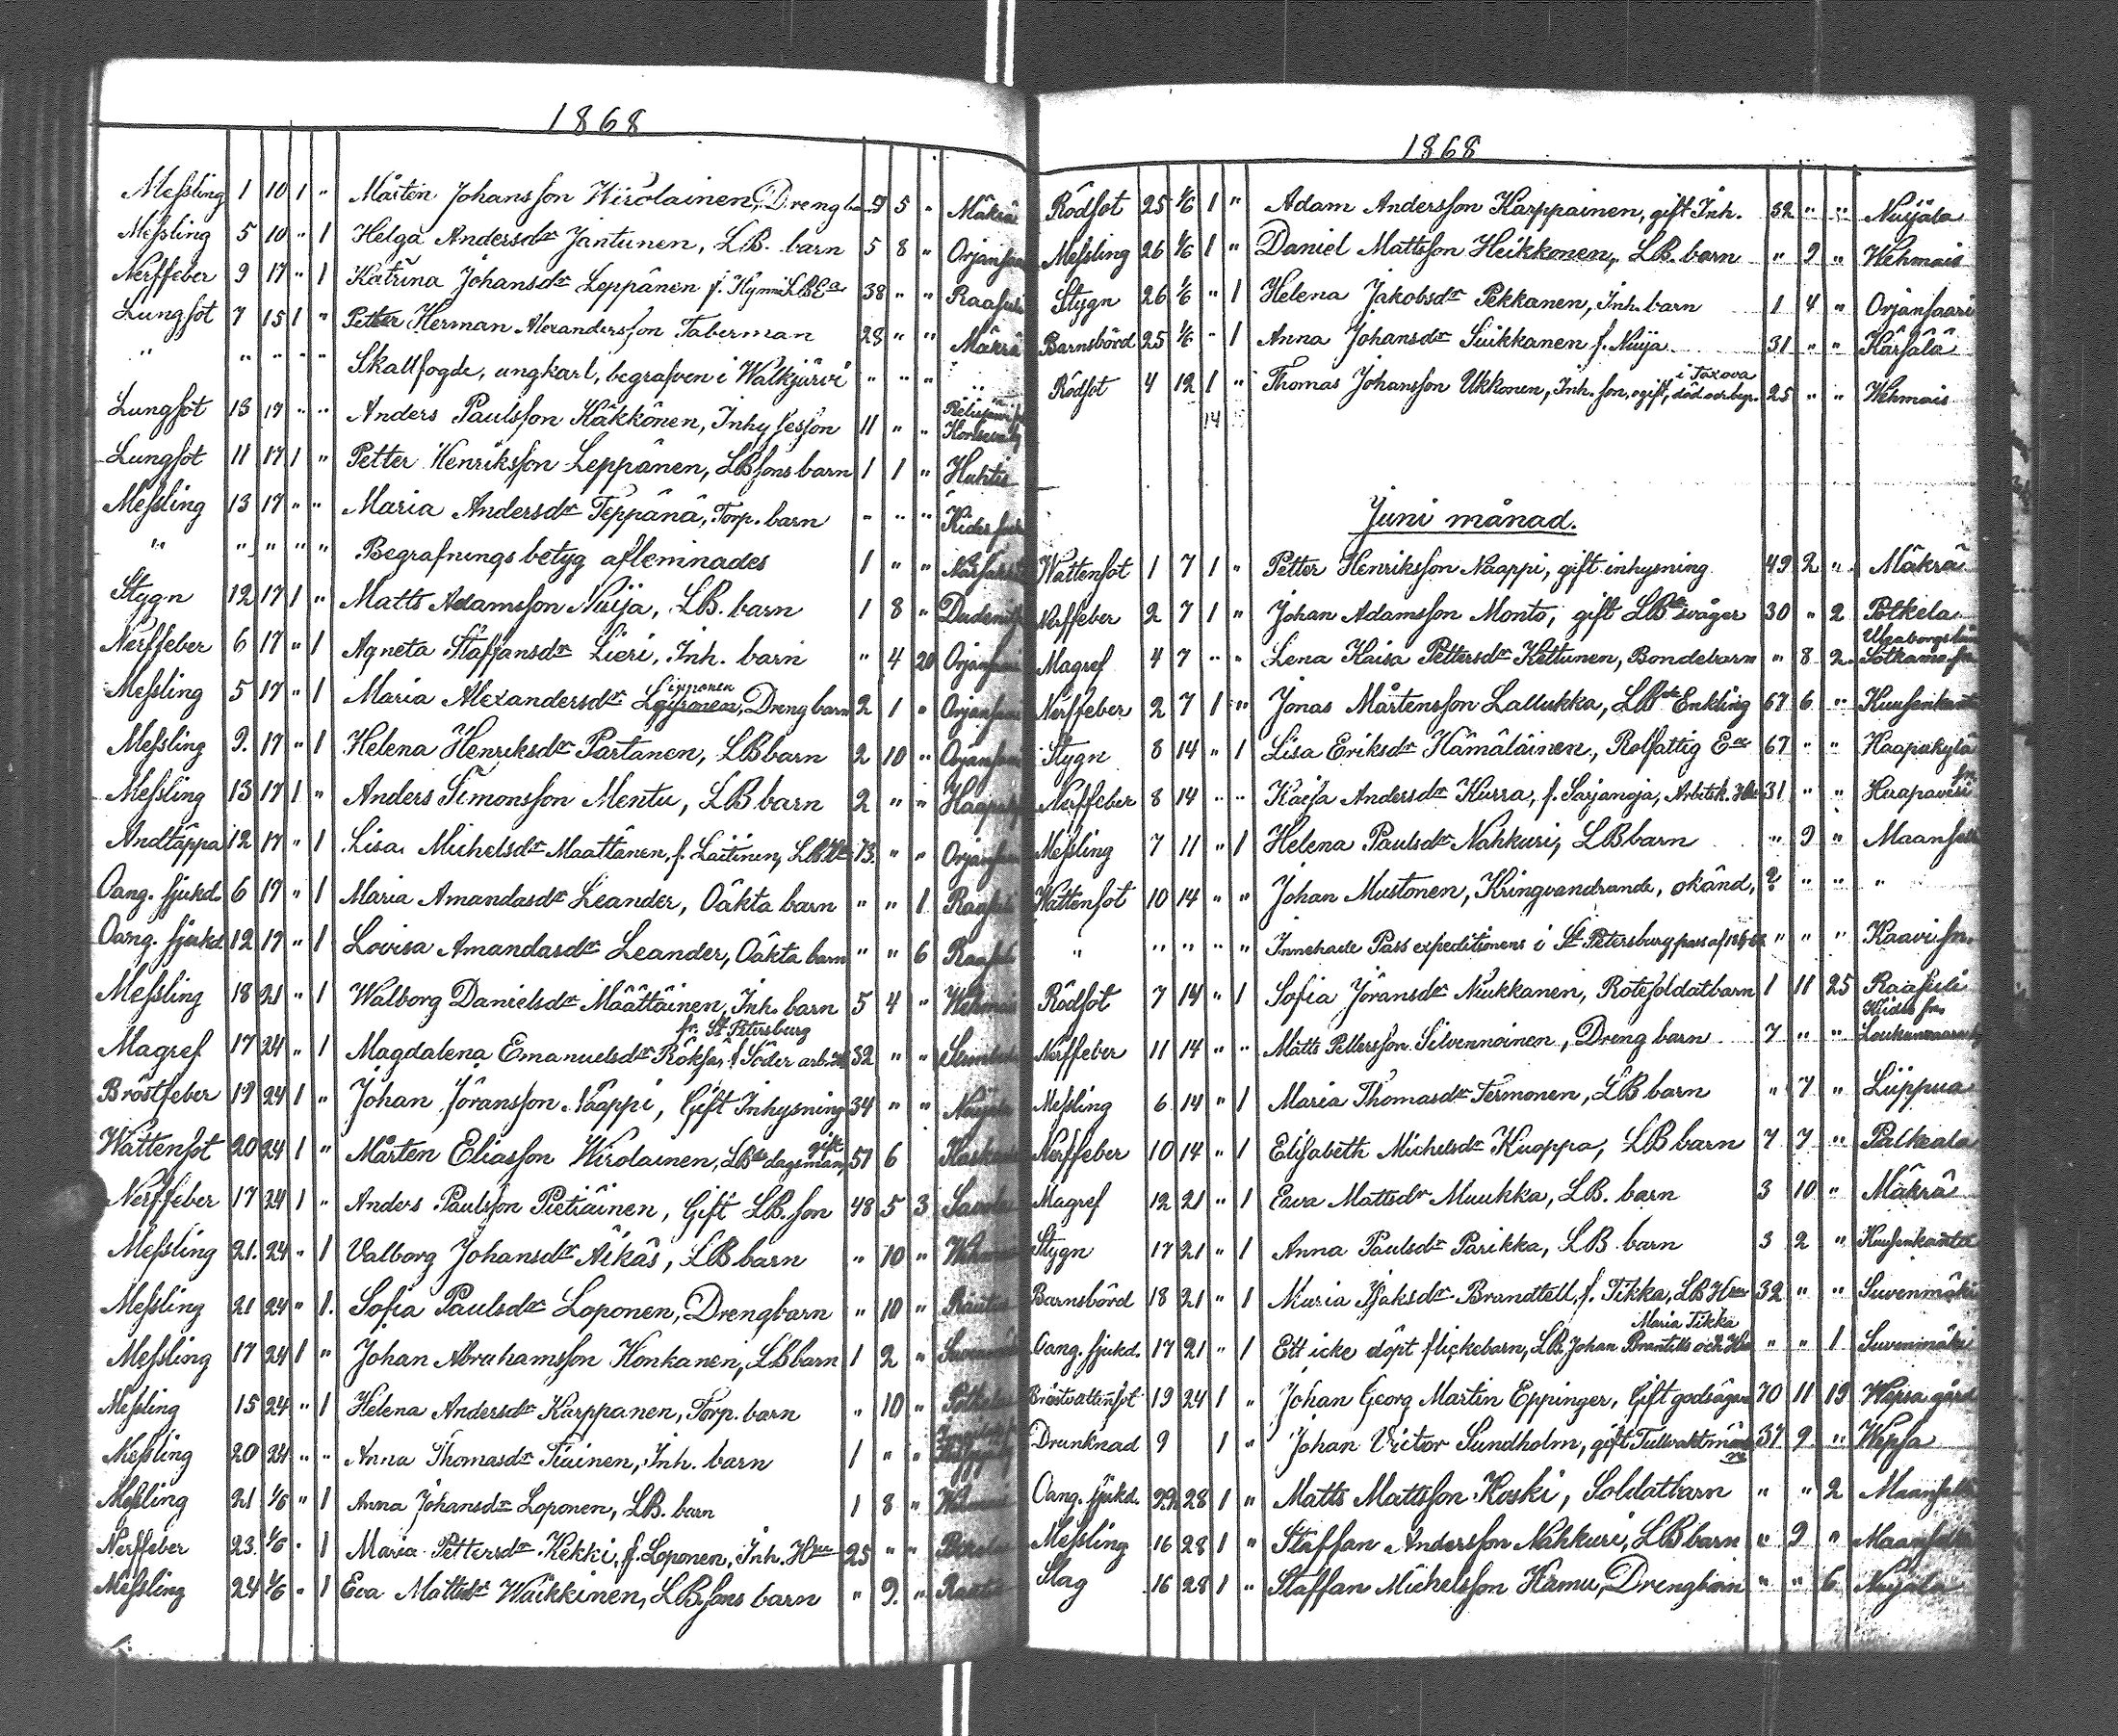 1868
Messling 1 10 1 " Mårten Johansson Wirolainen, Dreng barn 5 " Mäkrä
Messling 5 10 " 1 Helga Andersdr Jantunen, LB. barn 5 8 " Orjansaari
Nerffeber 9 17 " 1 Katrina Johansdr Leppänen f. Hynni LBEa 38 " " Raasuli
Lungsot 7 15 1 " Petter Herman Alexandersson Taberman 28 " " Mäkrä
" " " " " Skallfogde, ungkarl, begrafven i Walkjärvi " " " "
Lungsot 13 17 " " Anders Paulsson Käkkönen, Inhysesson 11 " "
Lungsot 11 17 1 " Petter Henriksson Leppänen, LBsons barn 1 1 " Huhtis
Messling 13 17 " " Maria Andersdr Teppänä, Torp. barn " " " Kides
" " " " " Begrafningsbetyg aflemnades 1 " "
Stygn 12 17 1 " Matts Adamsson Nuija, LB. barn 1 8 "
Nerffeber 6 17 " 1 Agneta Staffansdr Lieri, Inh. barn " 4 20 Orjansaari
Messling 5 17 " 1 Maria Alexandersdr Lipponen, Dreng barn 2 1 " Orjansaari
Messling 9. 17 " 1 Helena Henriksdr Partanen, LB barn 2 10 " Orjansaari
Messling 13 17 1 " Anders Simonsson Mentu, LB barn 2 " "
Andtäppa 12 17 " 1 Lisa Michelsdr Maattanen, f. Laitinen, LB 73 " " Orjansaari
Oang. sjukd. 6 17 " 1 Maria Amandasdr Leander, Oäkta barn " " 1 Raasuli
Oang. sjukd. 12 17 " 1 Lovisa Amandasdr Leander, Oäkta barn " " 6 Raasuli
Messling 18 21 " 1 Walborg Danielsdr Määttäinen, Inh. barn 5 4 " Wehmais
fr. St. Petersburg
Magref 17 24 " 1 Magdalena Emanuelsdr Röksa, f. Söder arb. 32 " "
Bröstfeber 19 24 1 " Johan Jöransson Naappi, Gift Inhysning 34 " " Nuijala
Wattensot 20 24 1 " Mårten Eliasson Wirolainen, LBs dagsman, gift 57 6
Nerffeber 17 24 1 " Anders Paulsson Pietiäinen, Gift LB. son 48 5 3
Messling 21. 24 " 1 Valborg Johansdr Äikäs, LB barn " 10 "
Messling 21 24 " 1. Sofia Paulsdr Loponen, Drengbarn " 10 "
Messling 17 24 1 " Johan Abrahamsson Konkanen, LB barn 1 2 "
Messling 15 24 " 1 Helena Andersdr Karppanen, Torp. barn " 10 "
Messling 20 24 " " Anna Thomasdr Tiainen, Inh. barn 1 " "
Messling 21 1/6 " 1 Anna Johansdr Loponen, LB. barn 1 8 "
Nerffeber 23. 1/6 " 1 Maria Pettersdr Kekki, f. Loponen, Inh. Hru 25 " "
Messling 24 1/6 " 1 Eva Mattsdr Waikkinen, LB sons barn " 9. "
1868
Rödsot 25 1/6 1 " Adam Andersson Karppainen, gift Inh. 32 " " Nuijala
Messling 26 1/6 1 " Daniel Mattsson Heikkonen, LB. barn " 9 " Wehmais
Stygn 26 1/6 " 1 Helena Jakobsdr Pekkanen, Inh. barn 1 4 " Orjansaari
Barnsbörd 25 1/6 " 1 Anna Johansdr Suikkanen f. Nuija 31 " " Karsälä
i Toxova
Rödsot 4 12 1 " Thomas Johansson Ukkonen, Inh. son, ogift, död och begr. 25 " " Wehmais
14
Juni månad.
Wattensot 1 7 1 " Petter Henriksson Naappi, gift inhysning 49 2 " Mäkrä
Nerffeber 2 7 1 " Johan Adamsson Monto, gift LBs svåger 30 " 2 Potkela
Uleaborgs län
Magref 4 7 " " Lena Kaisa Pettersdr Kettunen, Bondebarn " 8 2 Sotkamo sn.
Nerffeber 2 7 1 " Jonas Mårtensson Lallukka, LBde Enkling 67 6 " Kuusenkanta
Stygn 8 14 " 1 Lisa Eriksdr Hämäläinen, Rotfattig Ea 67 " " Haapakylä
Nerffeber 8 14 " " Kaisa Andersdr Kurra, f. Sarjanoja, Arbetsk. Hru 31 " " Haapavesi sn.
Messling 7 11 " 1 Helena Paulsdr Nahkuri, LB barn " 9 " Maanselkä
Wattensot 10 14 " " Johan Mustonen, Kringvandrande, okänd, ? " " "
" " " " " Innehade Pass expeditionens i St Petersburg pass af " " " Kaavi sn.
Rödsot 7 14 " 1 Sofia Jöransdr Nuikkanen, Rotesoldatbarn 1 11 25 Raasuli
Kides sn.
Nerffeber 11 14 " " Matts Pettersson Silvennoinen, Dreng barn 7 " "
Messling 6 14 " 1 Maria Thomasdr Termonen, LB barn " 7 " Lüppua
Nerffeber 10 14 " 1 Elisabeth Michelsdr Kuoppa, LB barn 7 7 " Palkeala
Magref 12 21 " 1 Eva Mattsdr Muukka, LB. barn 3 10 " Mäkrä
Stygn 17 21 " 1 Anna Paulsdr Parikka, LB. barn 3 2 " Kuusenkanta
Barnsbörd 18 21 " 1 Maria Isaksdr Brandtell, f. Tikka, LB Hru 32 " " Suvenmäki
Maria Tikka
Oang. sjukd. 17 21 " 1 Ett icke döpt flickebarn, LB. Johan Brantells och Hru " " 1 Suvenmäki
Bröstvattensot 19 24 1 " Johan Georg Martin Eppinger, Gift godsägare 70 11 19 Wepsa gård
Drunknad 9 1 " Johan Victor Sundholm, gift Tullvaktmästare 37 9 " Wepsa
Oang. sjukd. 22 28 1 " Matts Mattsson Koski, Soldatbarn " " 2 Maanselkä
Messling 16 28 1 " Staffan Andersson Nahkuri, LB barn " 9 " Maanselkä
Slag 16 28 1 " Staffan Michelsson Hamu, Drengbarn " " 6 Nuijala